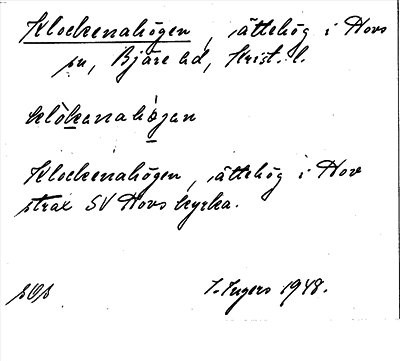 Klockenahögen, ättehög i Hovs
sn, Bjäre hd, Krist. l.
klòkanahögan
Klockenahögen, ättehög i Hov
strax SV Hovs kyrka.
I. Ingers 1948.